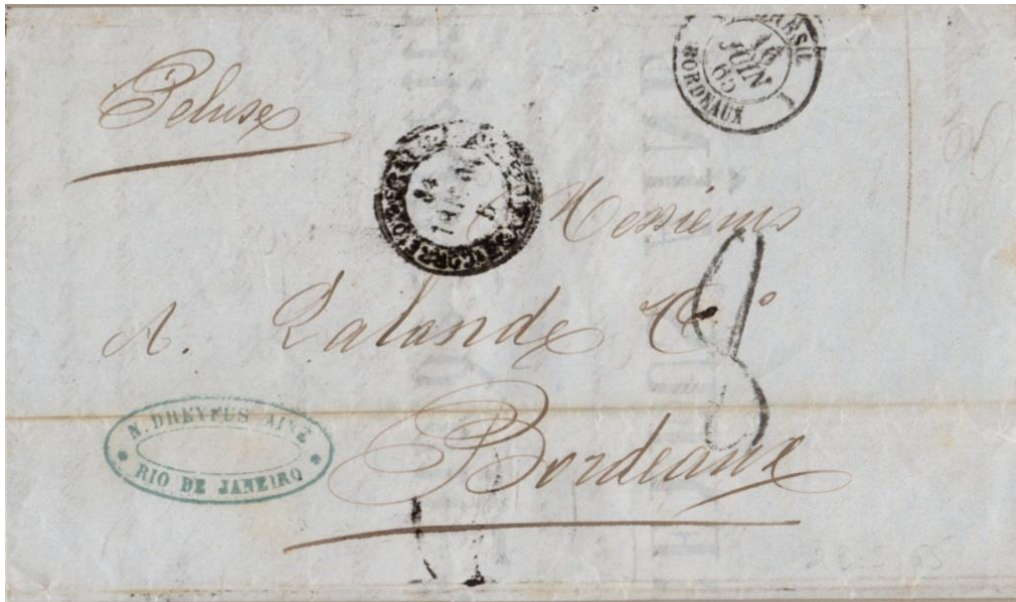 Peluse
BRESIL
16
JUIN
65
BORDEAUX
Messieurs
A. Lalande & Cº
8
Bordeaux
N. DREYFUS AINÉ
RIO DE JANEIRO